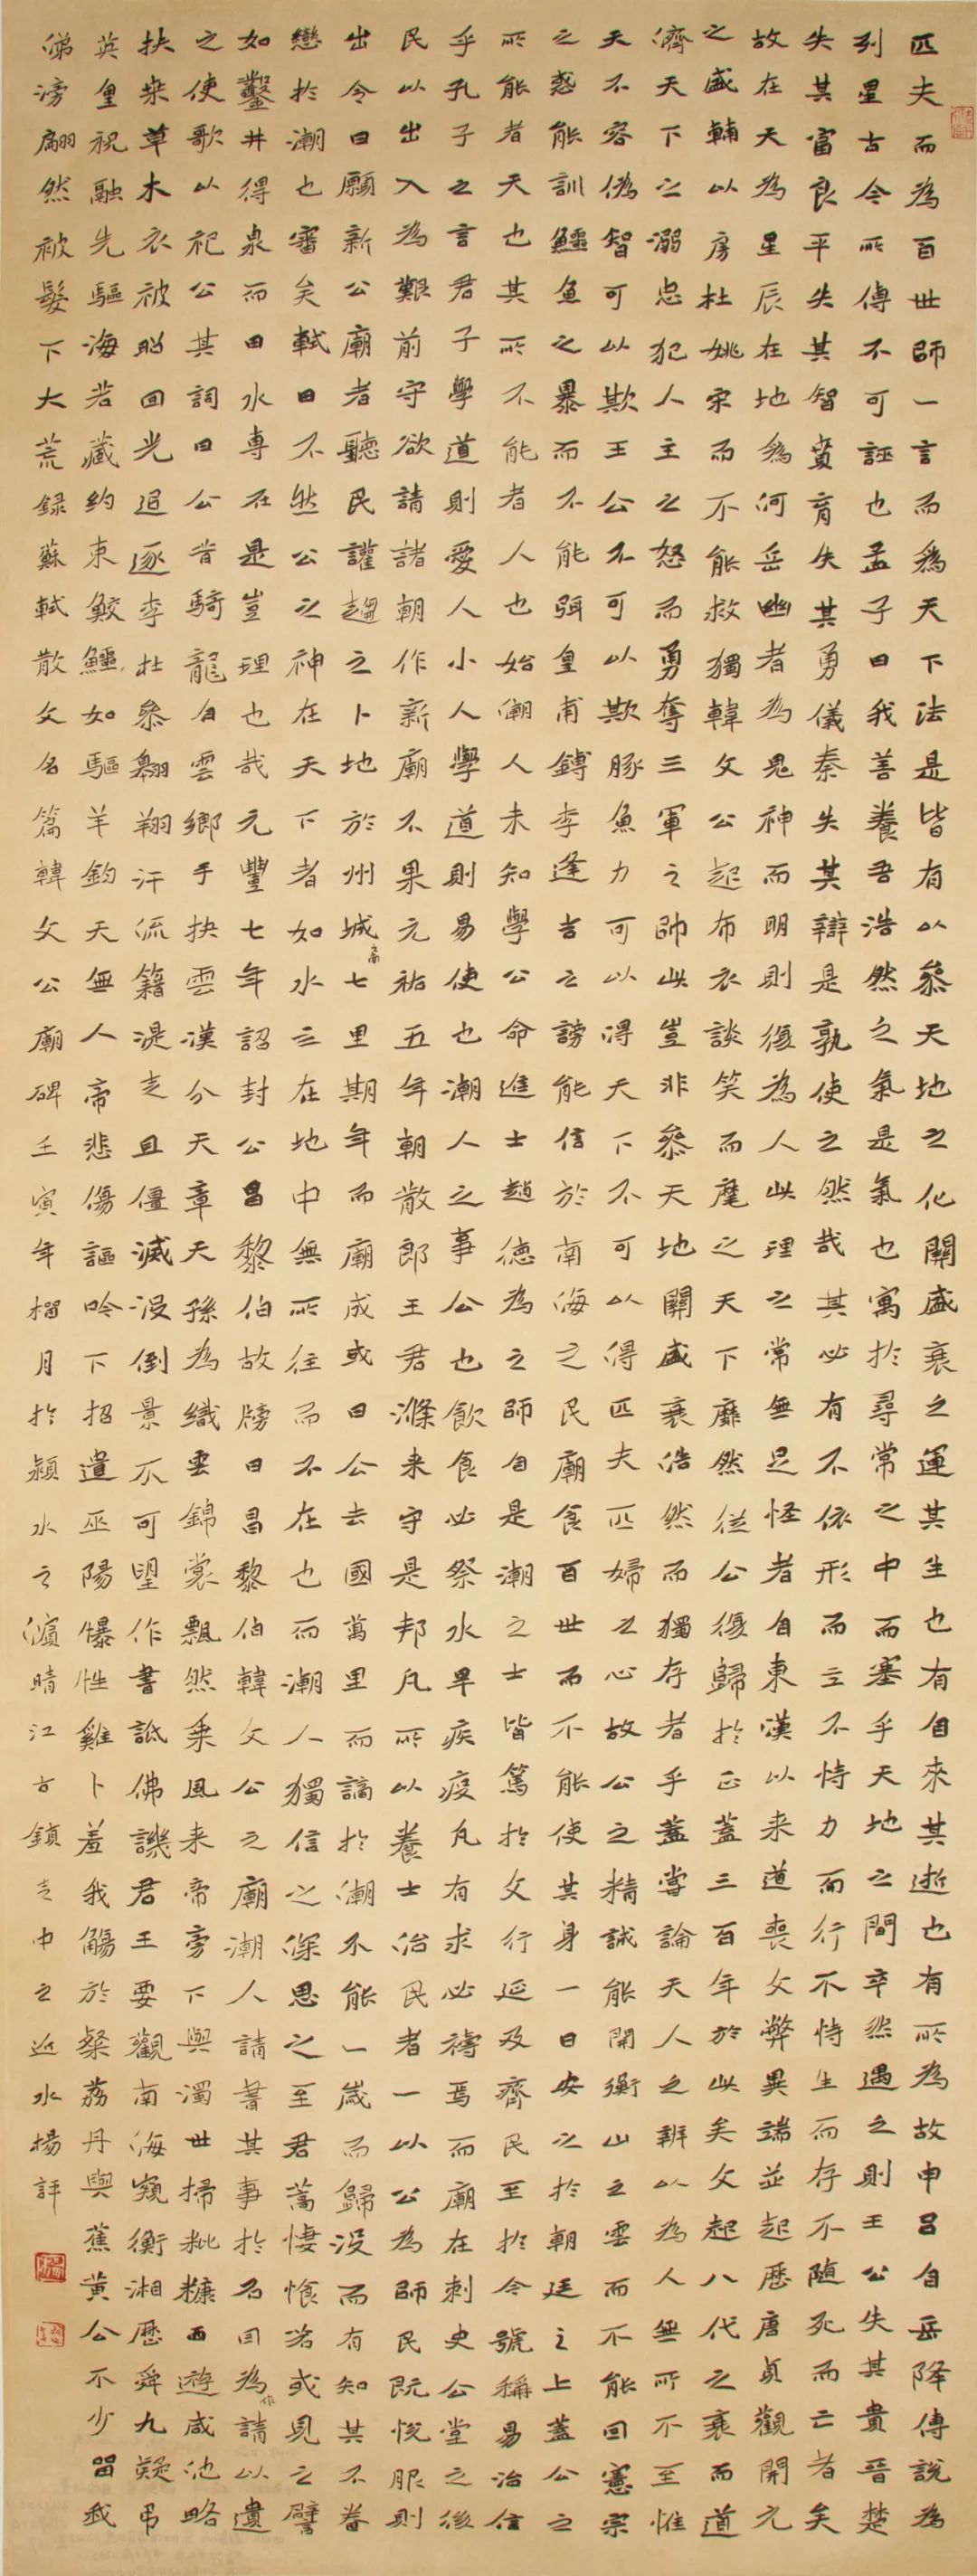 匹夫而為百世師一言而為天下法是皆有以參天地之化關盛衰之運其生也有自來其逝也有所為故申呂自岳降傅說為
列星古今所傳不可誣也孟子曰我善養吾浩然之氣是氣也寓於尋常之中而塞乎天地之間卒然遇之則王公失其貴晉楚
失其富良平失其智賁育失其勇儀秦失其辯是孰使之然哉其必有不依形而立不恃力而行不恃生而存不隨死而亡者矣
故在天為星辰在地為河岳幽者為鬼神而明則復為人此理之常無足怪者自東漢以来道喪文弊異端並起歷唐貞觀開元
之盛輔以房杜姚宋而不能救獨韓文公起布衣談笑而麾之天下靡然從公復歸於正蓋三百年於此矣文起八代之衰而道
濟天下之溺忠犯人主之怒而勇奪三軍之帥此豈非參天地關盛衰浩然而獨存者乎蓋嘗論天人之辨以為人無所不至惟
天不容偽智可以欺王公不可以欺豚魚力可以得天下不可以得匹夫匹婦之心故公之精誠能開衡山之雲而不能回憲宗
之惑能訓鱷魚之暴而不能弭皇甫鎛李逢吉之謗能信於南海之民廟食百世而不能使其身一日安之於朝廷之上蓋公之
所能者天也其所不能者人也始潮人未知學公命進士趙德為之師自是潮之士皆篤於文行延及齊民至於今號稱易治信
乎孔子之言君子學道則愛人小人學道則易使也潮人之事公也飲食必祭水旱疾疫凡有求必禱焉而廟在刺史公堂之後
民以出入為艱前守欲請諸朝作新廟不果元祐五年朝散郎王君滌来守是邦凡所以養士治民者一以公為師民既悅服則
出令曰願新公廟者聽民讙趨之卜地於州城之南七里期年而廟成或曰公去國萬里而謫於潮不能一歲而歸沒而有知其不眷
戀於潮也審矣軾曰不然公之神在天下者如水之在地中無所往而不在也而潮人獨信之深思之至君蒿悽愴若或見之譬
如鑿井得泉而曰水專在是豈理也哉元豐七年詔封公昌黎伯故牓曰昌黎伯韓文公之廟潮人請書其事於石因為作請以遺
之使歌以祀公其詞曰公昔騎龍白雲鄉手抉雲漢分天章天孫為織雲錦裳飄然乘風来帝旁下與濁世掃秕糠西遊咸池略
扶桑草木衣被昭回光追逐李杜參翱翔汗流籍湜走且僵滅沒倒景不可望作書詆佛譏君王要觀南海窺衡湘歷舜九疑弔
英皇祝融先驅海若藏約束鮫鱷如驅羊鈞天無人帝悲傷謳吟下招遣巫陽犦牲雞卜羞我觴於粲荔丹與蕉黃公不少留我
涕滂翩然被髮下大荒錄蘇軾散文名篇韓文公廟碑壬寅年榴月於潁水之濱晴江古鎮之近水楊評